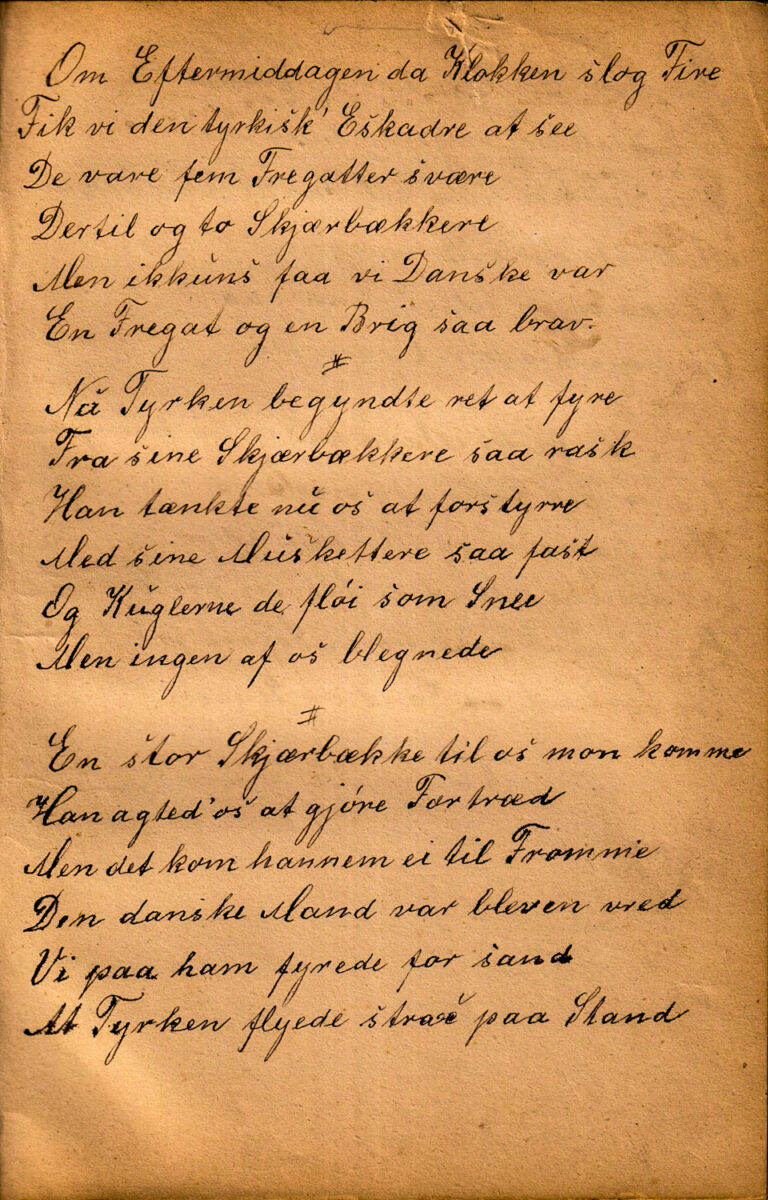 Om Eftermiddagen da Klokken slog Fire
Fik vi den tyrkisk' Eskadre at see
De vare fem Fregatter svære
Dertil og to Skjærbækkere
Men ikkuns faa vi Danske var
En Fregat og en Brig saa brav.
#
Nu Tyrken begyndte ret at fyre
Fra sine Skjærbækkere saa rask
Han tænkte nu os at forstyrre
Med sine Muskettere saa fast
Og Kuglerne de fløi som Snee
Men ingen af os blegnede
#
En stor Skjærbække til os mon komme
Han agted' os at gjøre Fortræd
Men det kom hannem ei til Fromme
Den danske Mand var bleven vred
Vi paa ham fyrede for sand
At Tyrken flyede strax paa Stand